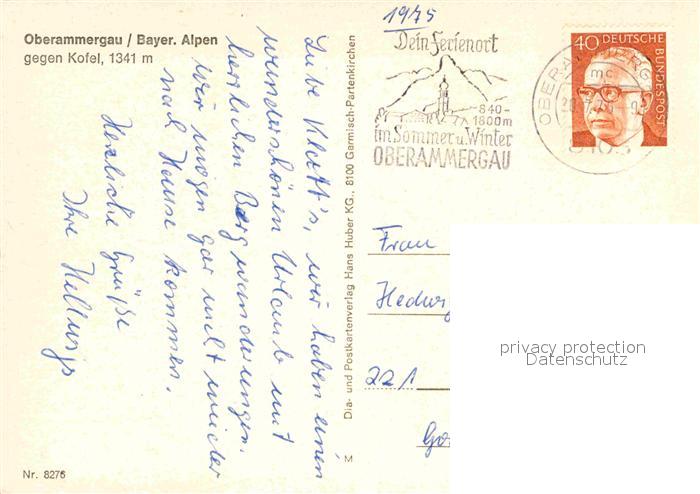 Oberammergau / Bayer. Alpen
gegen Kofel, 1341 m
Liebe Klatt's, wir haben einen
wunderschönen Urlaub mit
herrlichen Bergwanderungen.
Wir mögen gar nicht wieder
nach Hause kommen.
Herzliche Grüße
Ihre Hellwigs
Nr. 8276
Dia- und Postkartenverlag Hans Huber KG., 8100 Garmisch-Partenkirchen
M
1975
Dein Ferienort
840-
1800m
im Sommer u. Winter
OBERAMMERGAU
40 DEUTSCHE BUNDESPOST
mc
8103
Frau
Hedwig
221
privacy protection
Datenschutz